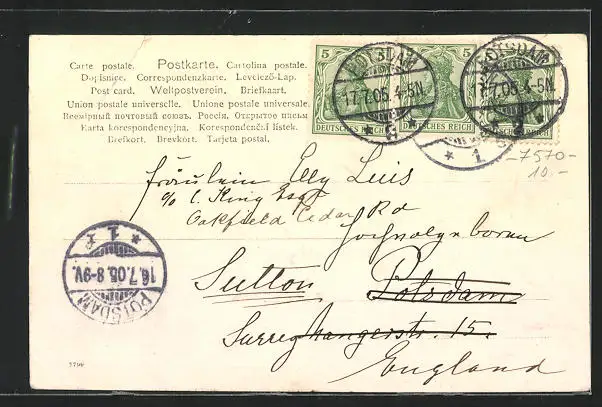 Carte postale. Postkarte. Cartolina postale.
Dopisnice. Correspondenzkarte. Levelező-Lap.
Post card. Weltpostverein. Briefkaart.
Union postale universelle. Unione postale universale.
Всемірный почтовый союзъ. Россія. Открытое письмо
Karta korespondencyjna. Korespondenční lístek.
Brefkort. Brevkort. Tarjeta postal.
5
5
DEUTSCHES REICH
DEUTSCHES REICH
POTSDAM
17.7.05.4-5N.
* 1
POTSDAM
17.7.05.4-5N.
* 1
-7570-
10.-
Fräulein Elly Luis
c/o C. King Esqr
Oakfield Cedar Rd
Hochwolgeboren
Sutton Potsdam
Surrey 15.
England
POTSDAM
16.7.05.8-9V.
* 1